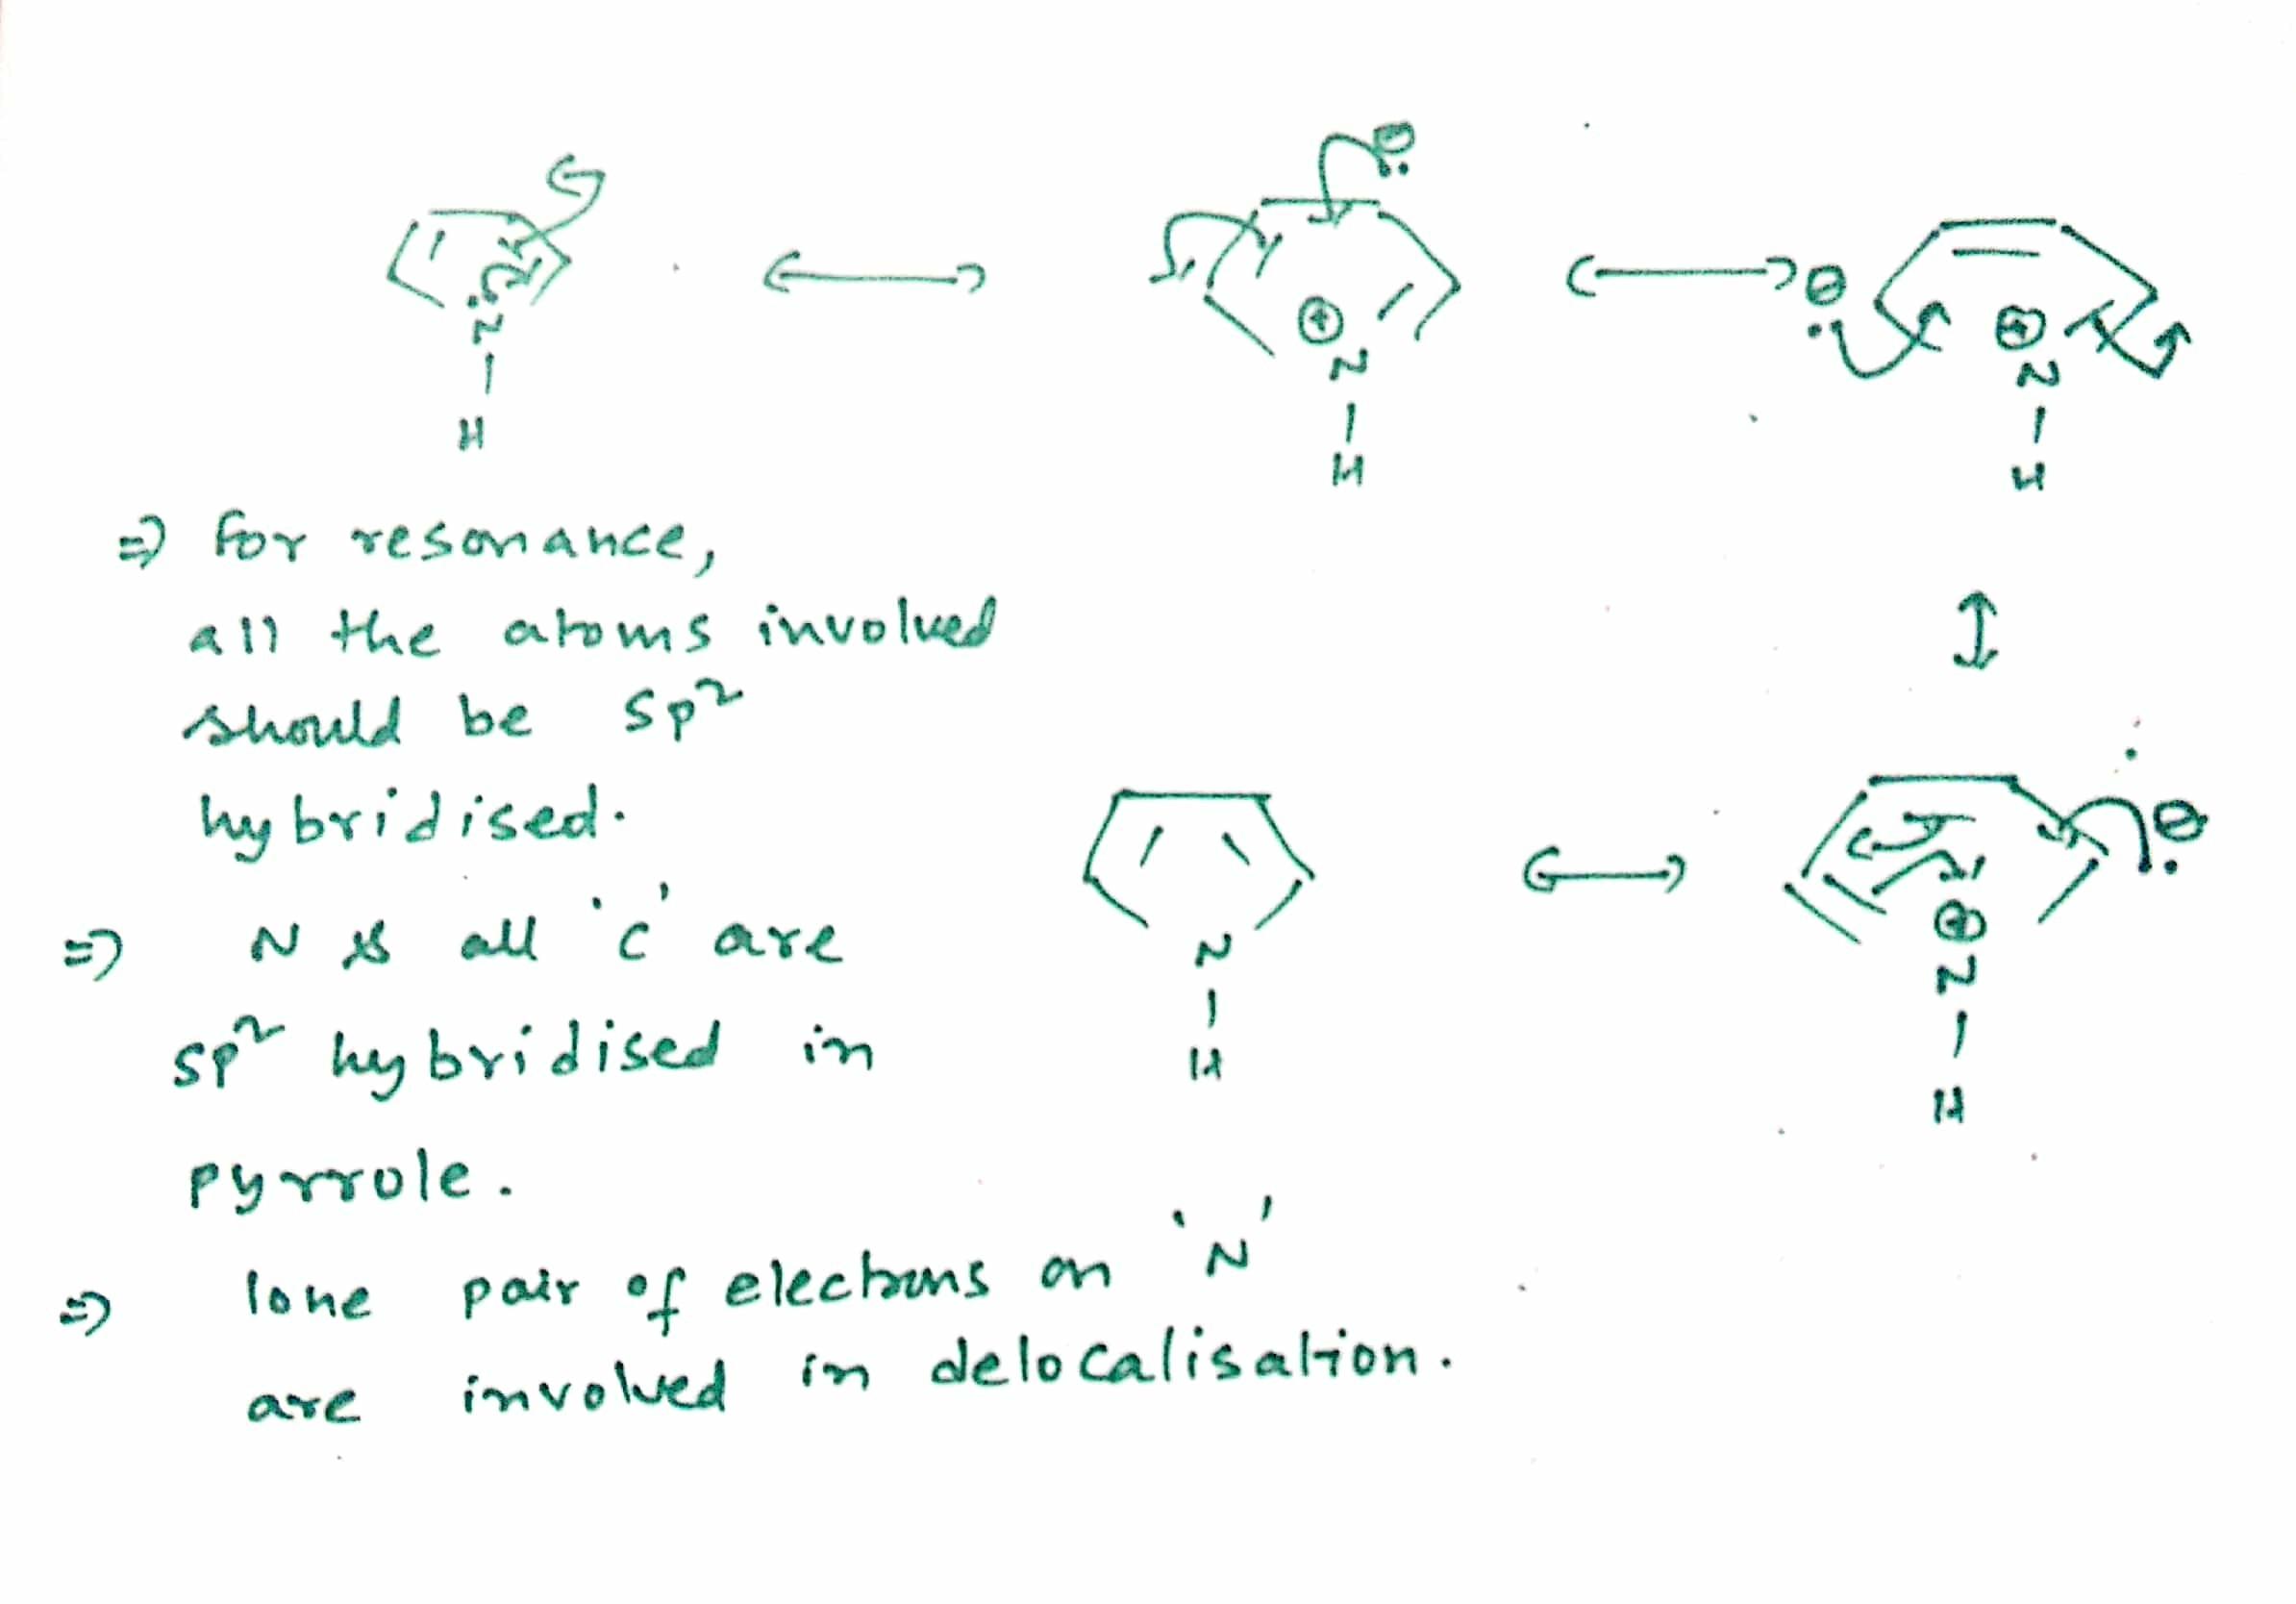 N
H
⊕
N
H
⊖
⊖
⊕
N
H
⇒ for resonance,
all the atoms involved
should be sp²
hybridised.
⇒ N & all 'c' are
sp² hybridised in
pyrrole.
N
H
⊖
⊕
N
H
⇒ lone pair of electrons on 'N'
are involved in delocalisation.